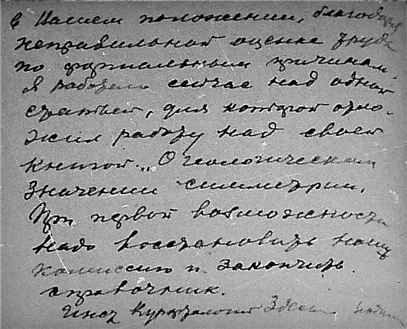 в Вашем положении, благодаря
неправильной оценке труда
по формальным причинам.
Я работаю сейчас над одной
статьей, для которой отло-
жил работу над своей
книгой „О геологическом
значении симметрии.
При первой возможности
надо восстановить нашу
комиссию и закончить
справочник.
Здесь